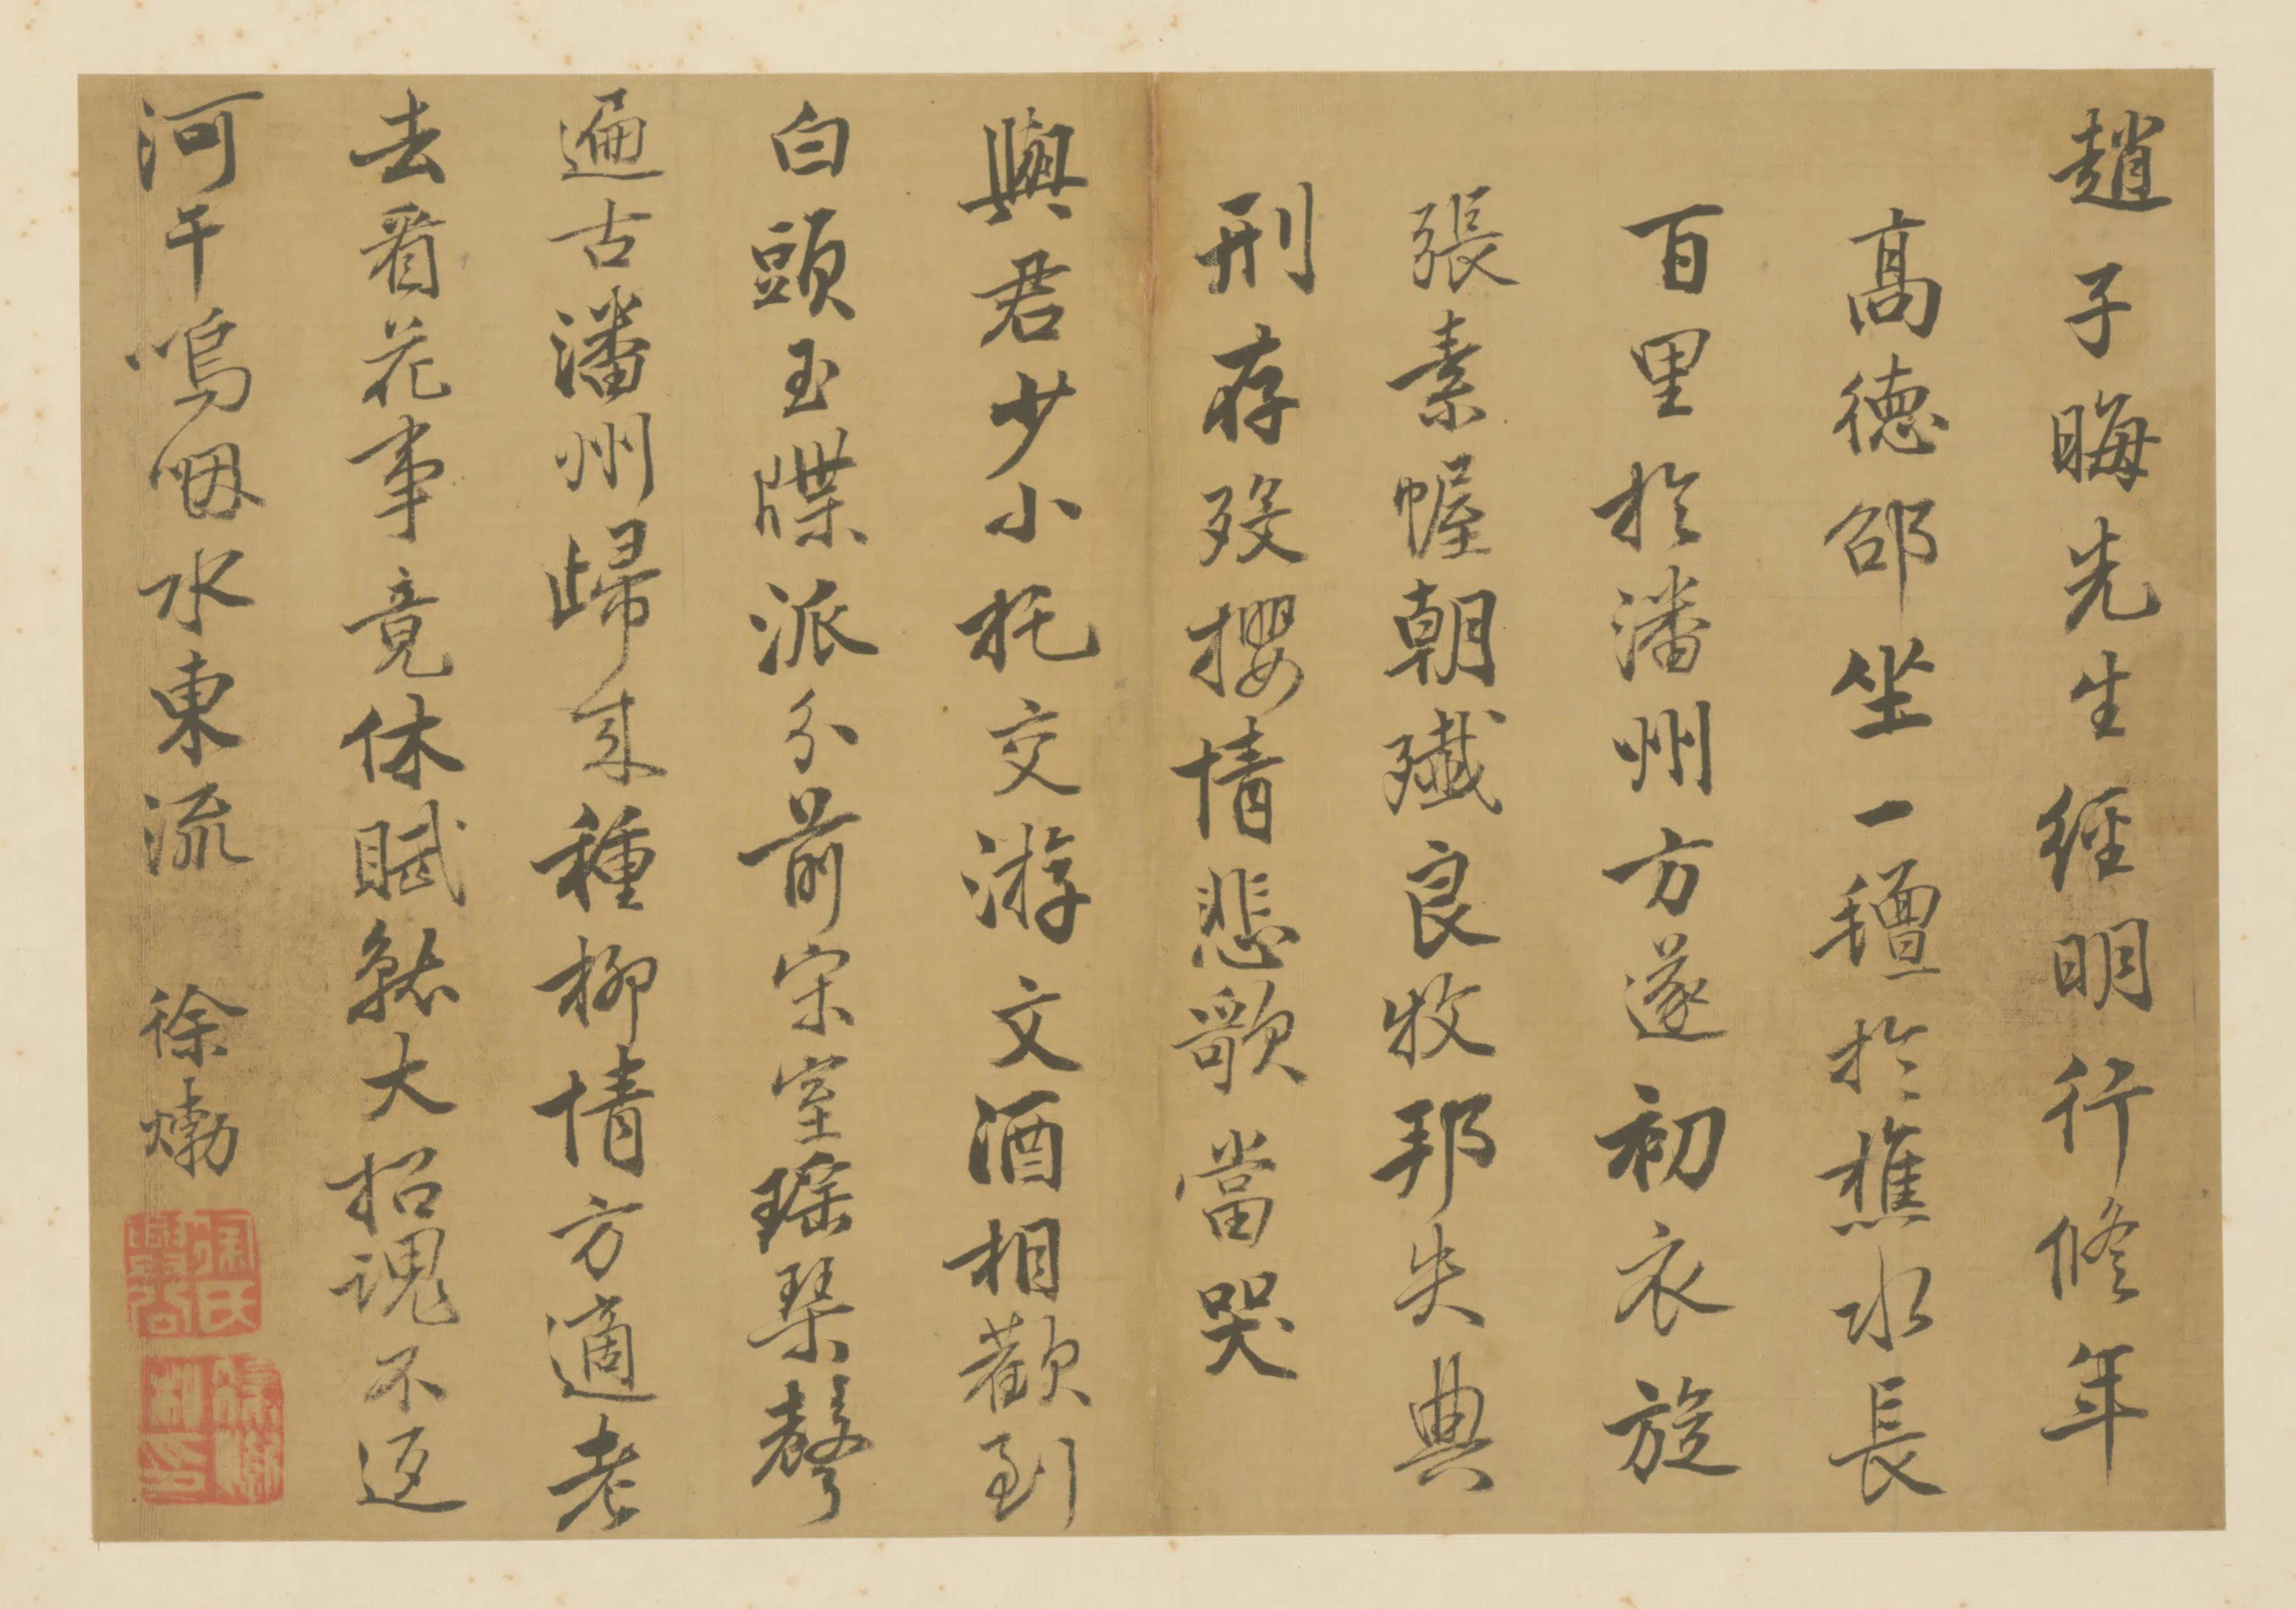 趙子晦先生經明行脩年
高德邵坐一氊於樵水長
百里於潘州方遂初衣旋
張素幄朝殲良牧邦失典
刑存歿攖情悲歌當哭
與君少小托交游文酒相歡到
白頭玉牒派分前宋室瑤琴聲
遍古潘州歸來種柳情方適老
去看花事竟休賦就大招魂不返
河干嗚咽水東流 徐𤊹
徐氏興公
徐𤊹私印